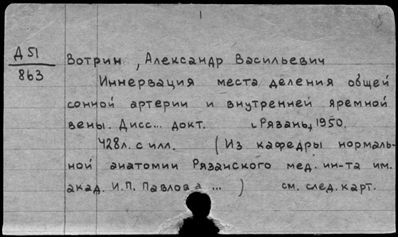 Д 51
863
Вотрин, Александр Васильевич
Иннервация места деления общей
сонной артерии и внутренней яремной
вены. Дисс... докт. Рязань, 1950.
428л. с илл. (Из кафедры нормаль-
ной анатомии Рязанского мед. ин-та им.
акад. И.П. Павлова ...) см. след. карт.